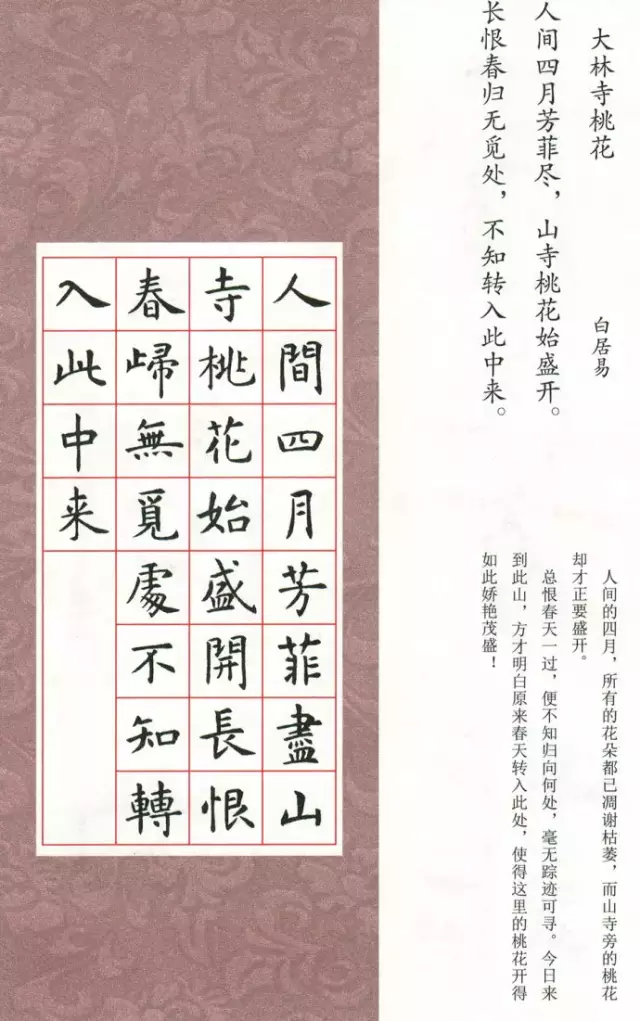 大林寺桃花
白居易
人间四月芳菲尽，山寺桃花始盛开。
长恨春归无觅处，不知转入此中来。
人间的四月，所有的花朵都已凋谢枯萎，而山寺旁的桃花
却才正要盛开。
总恨春天一过，便不知归向何处，毫无踪迹可寻。今日来
到此山，方才明白原来春天转入此处，使得这里的桃花开得
如此娇艳茂盛！
人間四月芳菲盡山
寺桃花始盛開長恨
春歸無覓處不知轉
入此中来